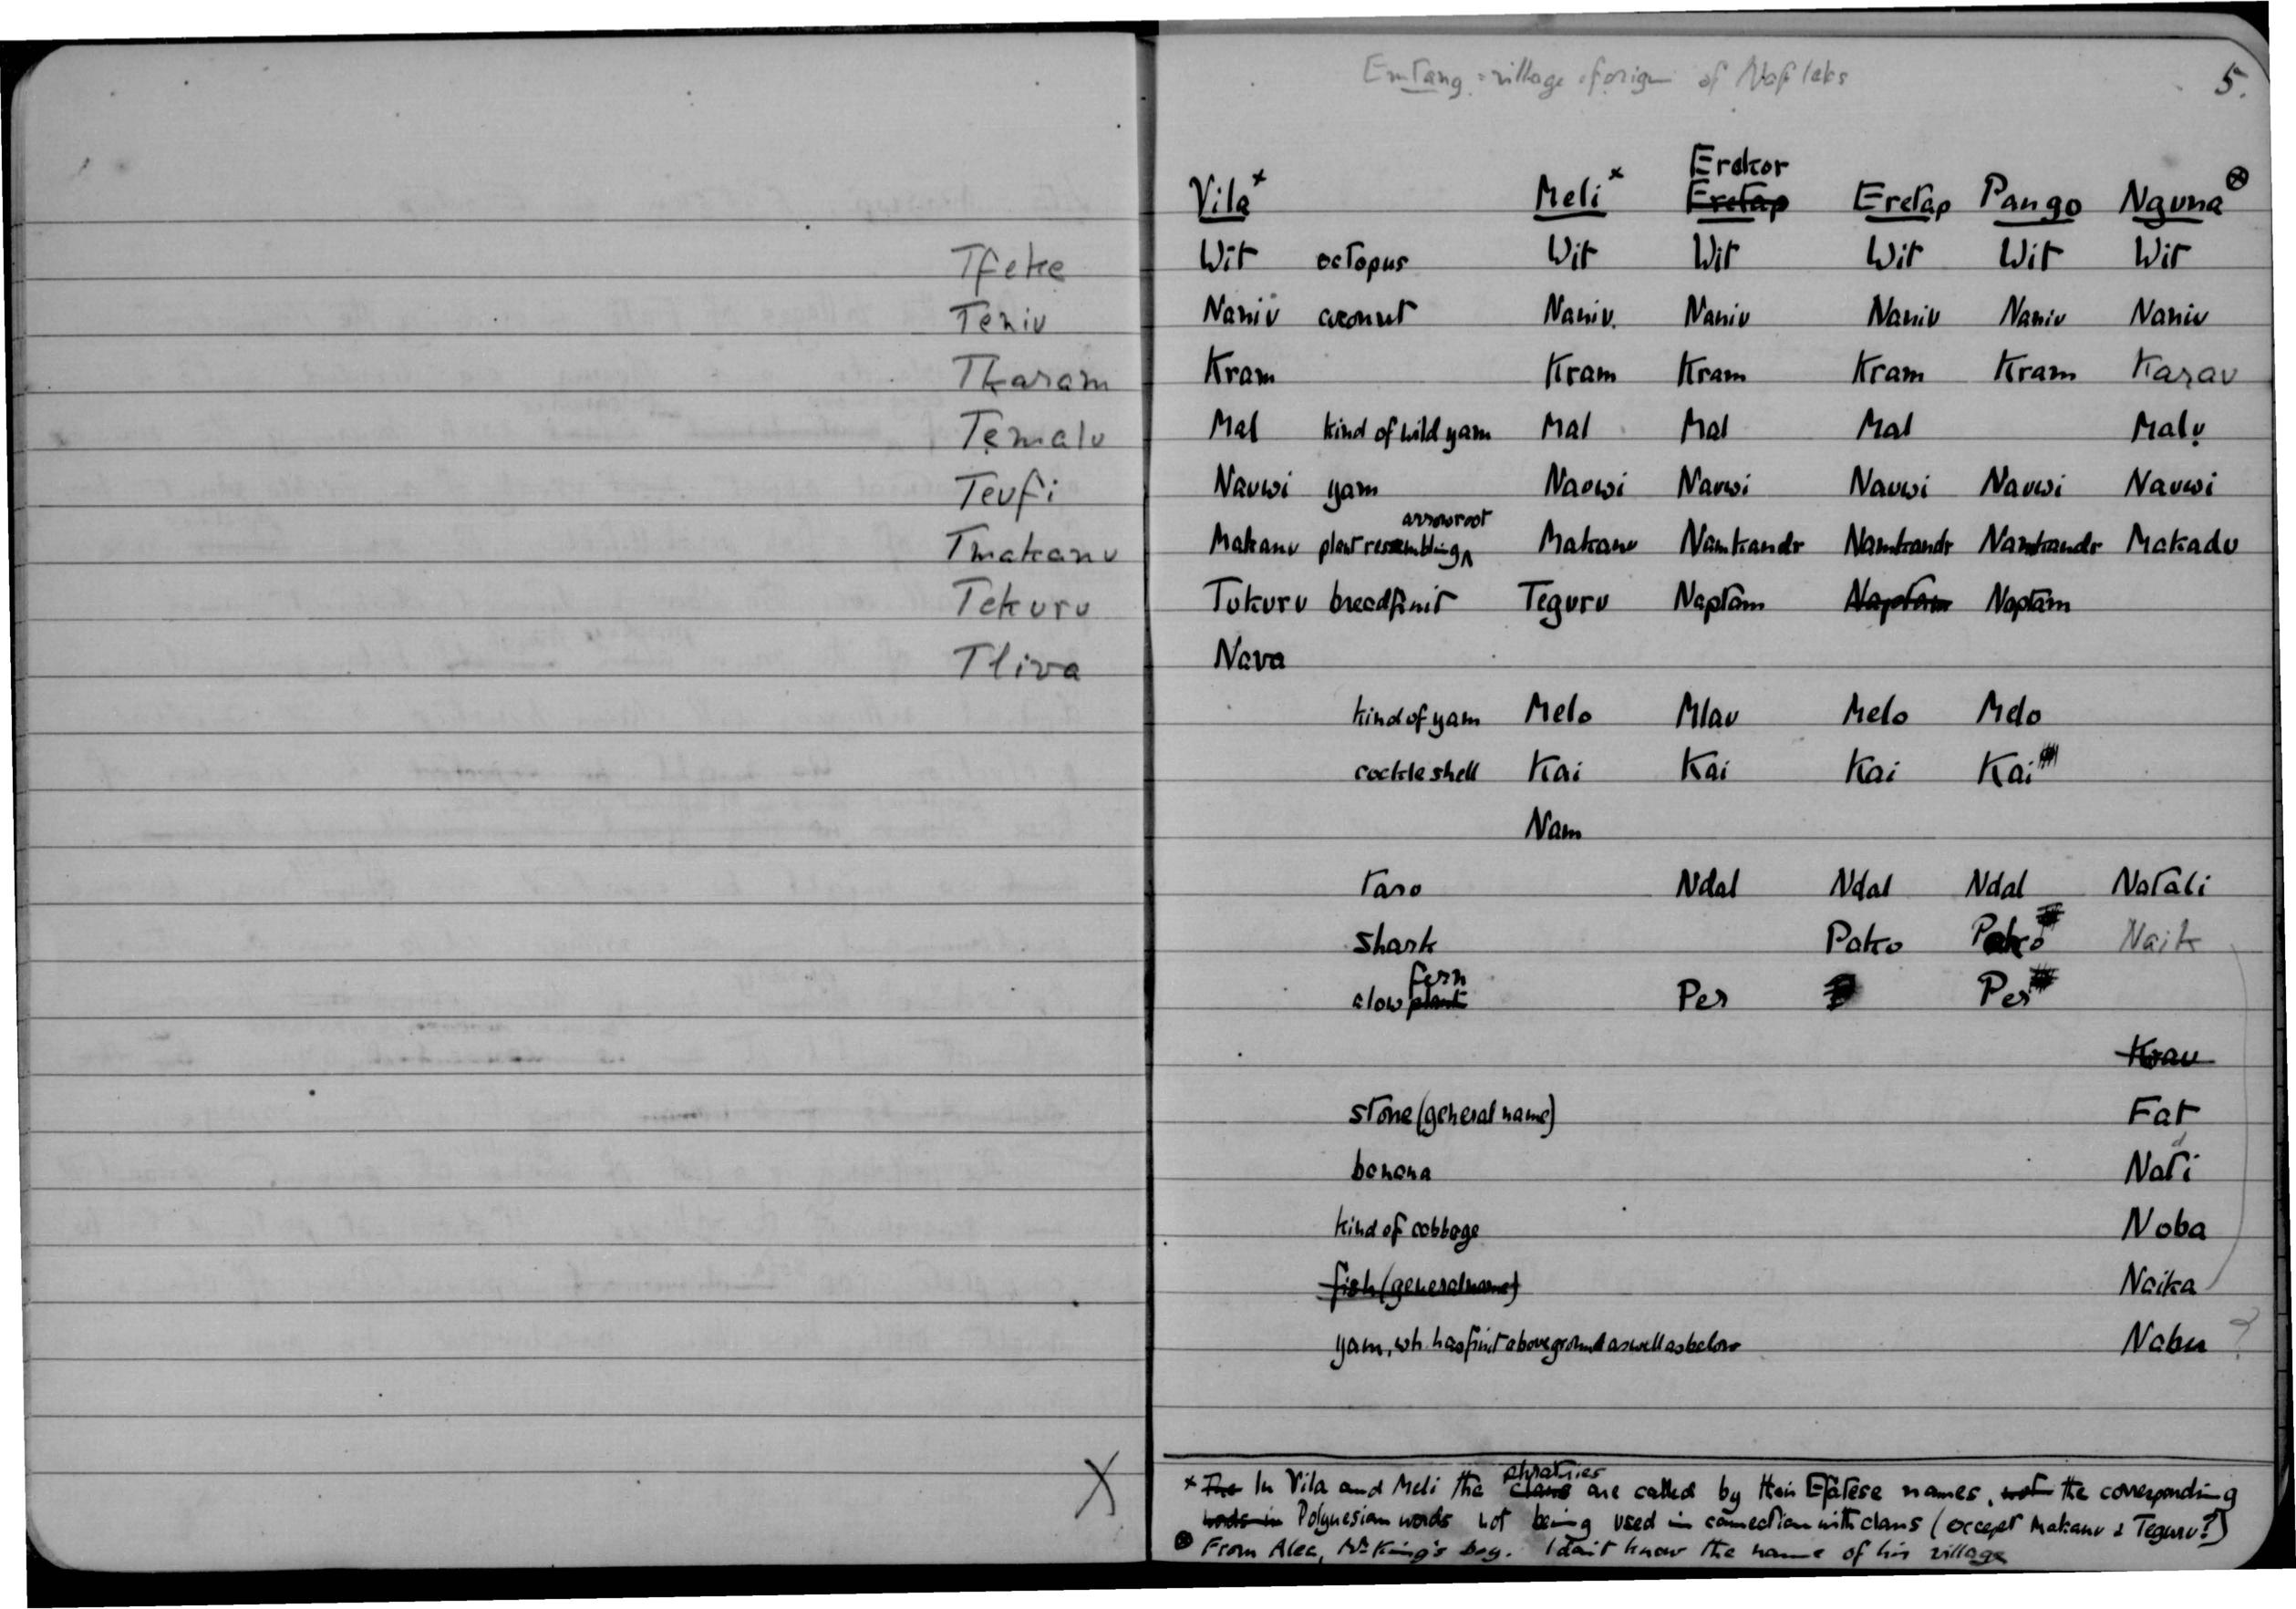 Tfeke
Teniu
Tkaram
Temalu
Teufi
Tmakanu
Tekuru
Tliva
X
Emtang = village of origin of Naflaks
5.
Erakor
Vila x Meli x Eretap Eretap Pango Nguna ⊗
Wit octopus Wit Wit Wit Wit Wit
Naniu coconut Naniu. Naniu Naniu Naniu Naniu
Kram Kram Kram Kram Kram Karau
Mal kind of wild yam Mal Mal Mal Malu
Nauwi yam Nauwi Nauwi Nauwi Nauwi Nauwi
arrowroot
Makanu plant resembling Makanu Namkandr Namkandr Namkandr Makadu
Tukuru breadfruit Teguru Naptam Naptam Naptam
Nava
kind of yam Melo Mlau Melo Melo
cockle shell Kai Kai Kai Kai
Nam
taro Ndal Ndal Ndal Natali
shark Pako Pako Naik
fern
a low plant Per Per
Krau
stone (general name) Fat
d
banana Nati
kind of cabbage Noba
fish (general name) Naika
yam, wh. has fruit above ground as well as below Nabu ?
phratries
x The In Vila and Meli the clans are called by their Efatese names, not the corresponding
words in Polynesian words not being used in connection with clans (except Makanu & Teguru?)
⊗ From Alec, Mr King's boy. I don't know the name of his village